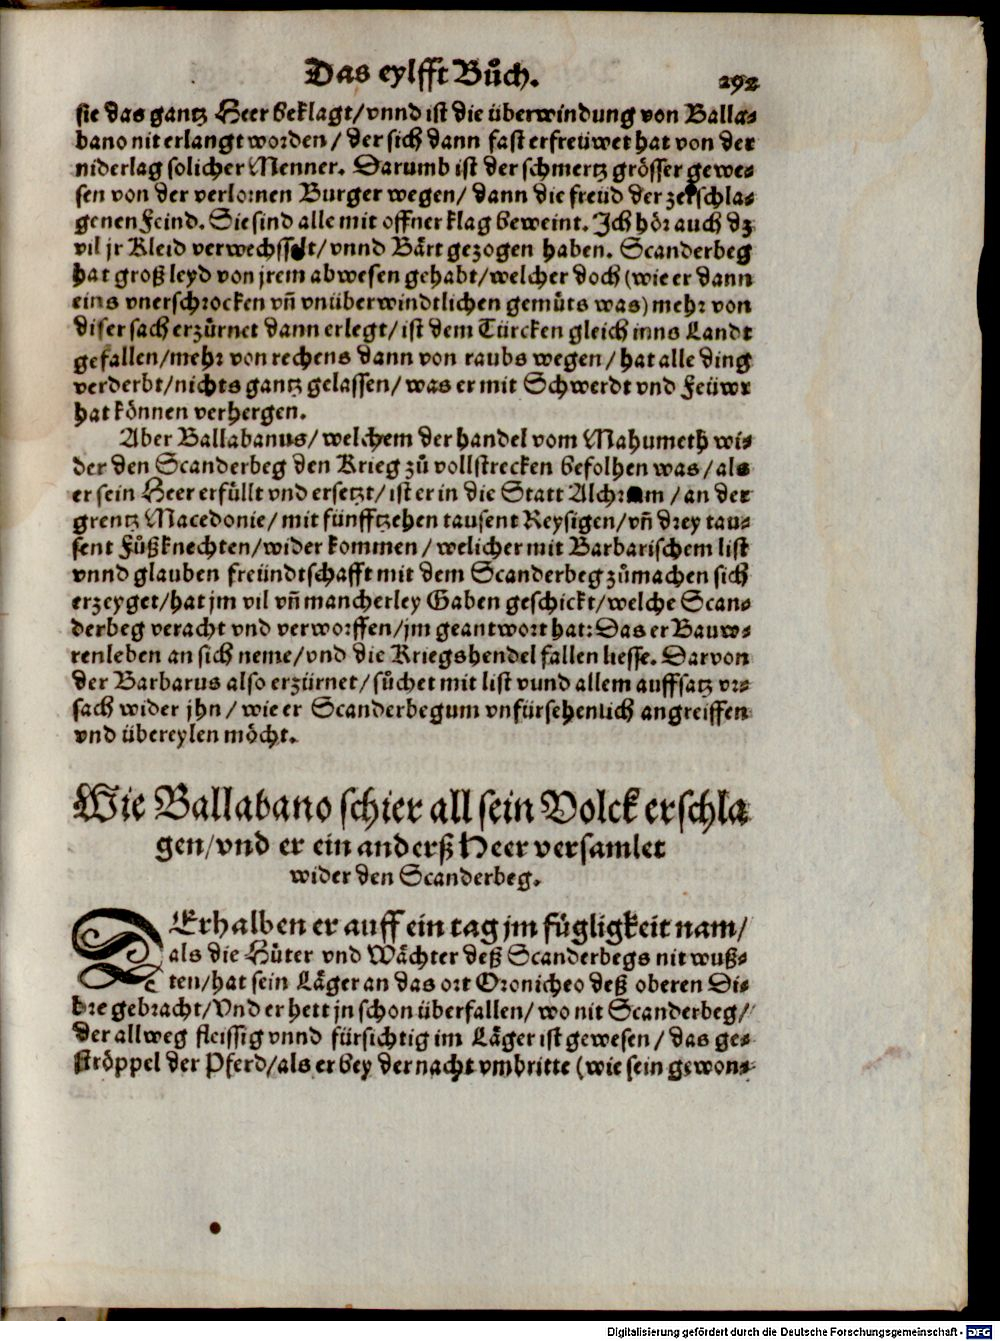 Das eylfft Bůch. 292
sie das gantz Heer beklagt/vnnd ist die überwindung von Balla-
bano nit erlangt worden/ der sich dann fast erfreüwet hat von der
niderlag solicher Menner. Darumb ist der schmertz grösser gewe-
sen von der verlornen Burger wegen/ dann die freüd der zerschla-
genen Feind. Sie sind alle mit offner klag beweint. Jch hör auch dz
vil jr Kleid verwechsslet/vnnd Bärt gezogen haben. Scanderbeg
hat groß leyd von jrem abwesen gehabt/welcher doch (wie er dann
eins vnerschrocken vñ vnüberwindtlichen gemůts was) mehr von
diser sach erzürnet dann erlegt/ist dem Türcken gleich inns Landt
gefallen/mehr von rechens dann von raubs wegen/ hat alle ding
verderbt/nichts gantz gelassen/ was er mit Schwerdt vnd Feüwr
hat können verhergen.
Aber Ballabanus/ welchem der handel vom Mahumeth wi-
der den Scanderbeg den Krieg zů vollstrecken befolhen was/als
er sein Heer erfüllt vnd ersetzt/ ist er in die Statt Alchriam/ an der
grentz Macedonie/ mit fünfftzehen tausent Reysigen/vñ drey tau-
sent Fůßknechten/wider kommen/ welicher mit Barbarischem list
vnnd glauben freündtschafft mit dem Scanderbeg zůmachen sich
erzeyget/hat jm vil vñ mancherley Gaben geschickt/welche Scan-
derbeg veracht vnd verworffen/jm geantwort hat: Das er Bauw-
renleben an sich neme/vnd die Kriegshendel fallen liesse. Darvon
der Barbarus also erzürnet/ sůchet mit list vund allem auffsatz vr-
sach wider jhn/ wie er Scanderbegum vnfürsehenlich angreiffen
vnd übereylen möcht.
Wie Ballabano schier all sein Volck erschla
gen/vnd er ein anderß Heer versamlet
wider den Scanderbeg.
DErhalben er auff ein tag jm fůgligkeit nam/
als die Hüter vnd Wächter deß Scanderbegs nit wuß-
ten/hat sein Läger an das ort Oronicheo deß oberen Di-
bre gebracht/Vnd er hett jn schon überfallen/ wo nit Scanderbeg/
der allweg fleissig vnnd fürsichtig im Läger ist gewesen/ das ge-
ströppel der Pferd/als er bey der nacht vmbritte (wie sein gewon-
Digitalisierung gefördert durch die Deutsche Forschungsgemeinschaft - DFG